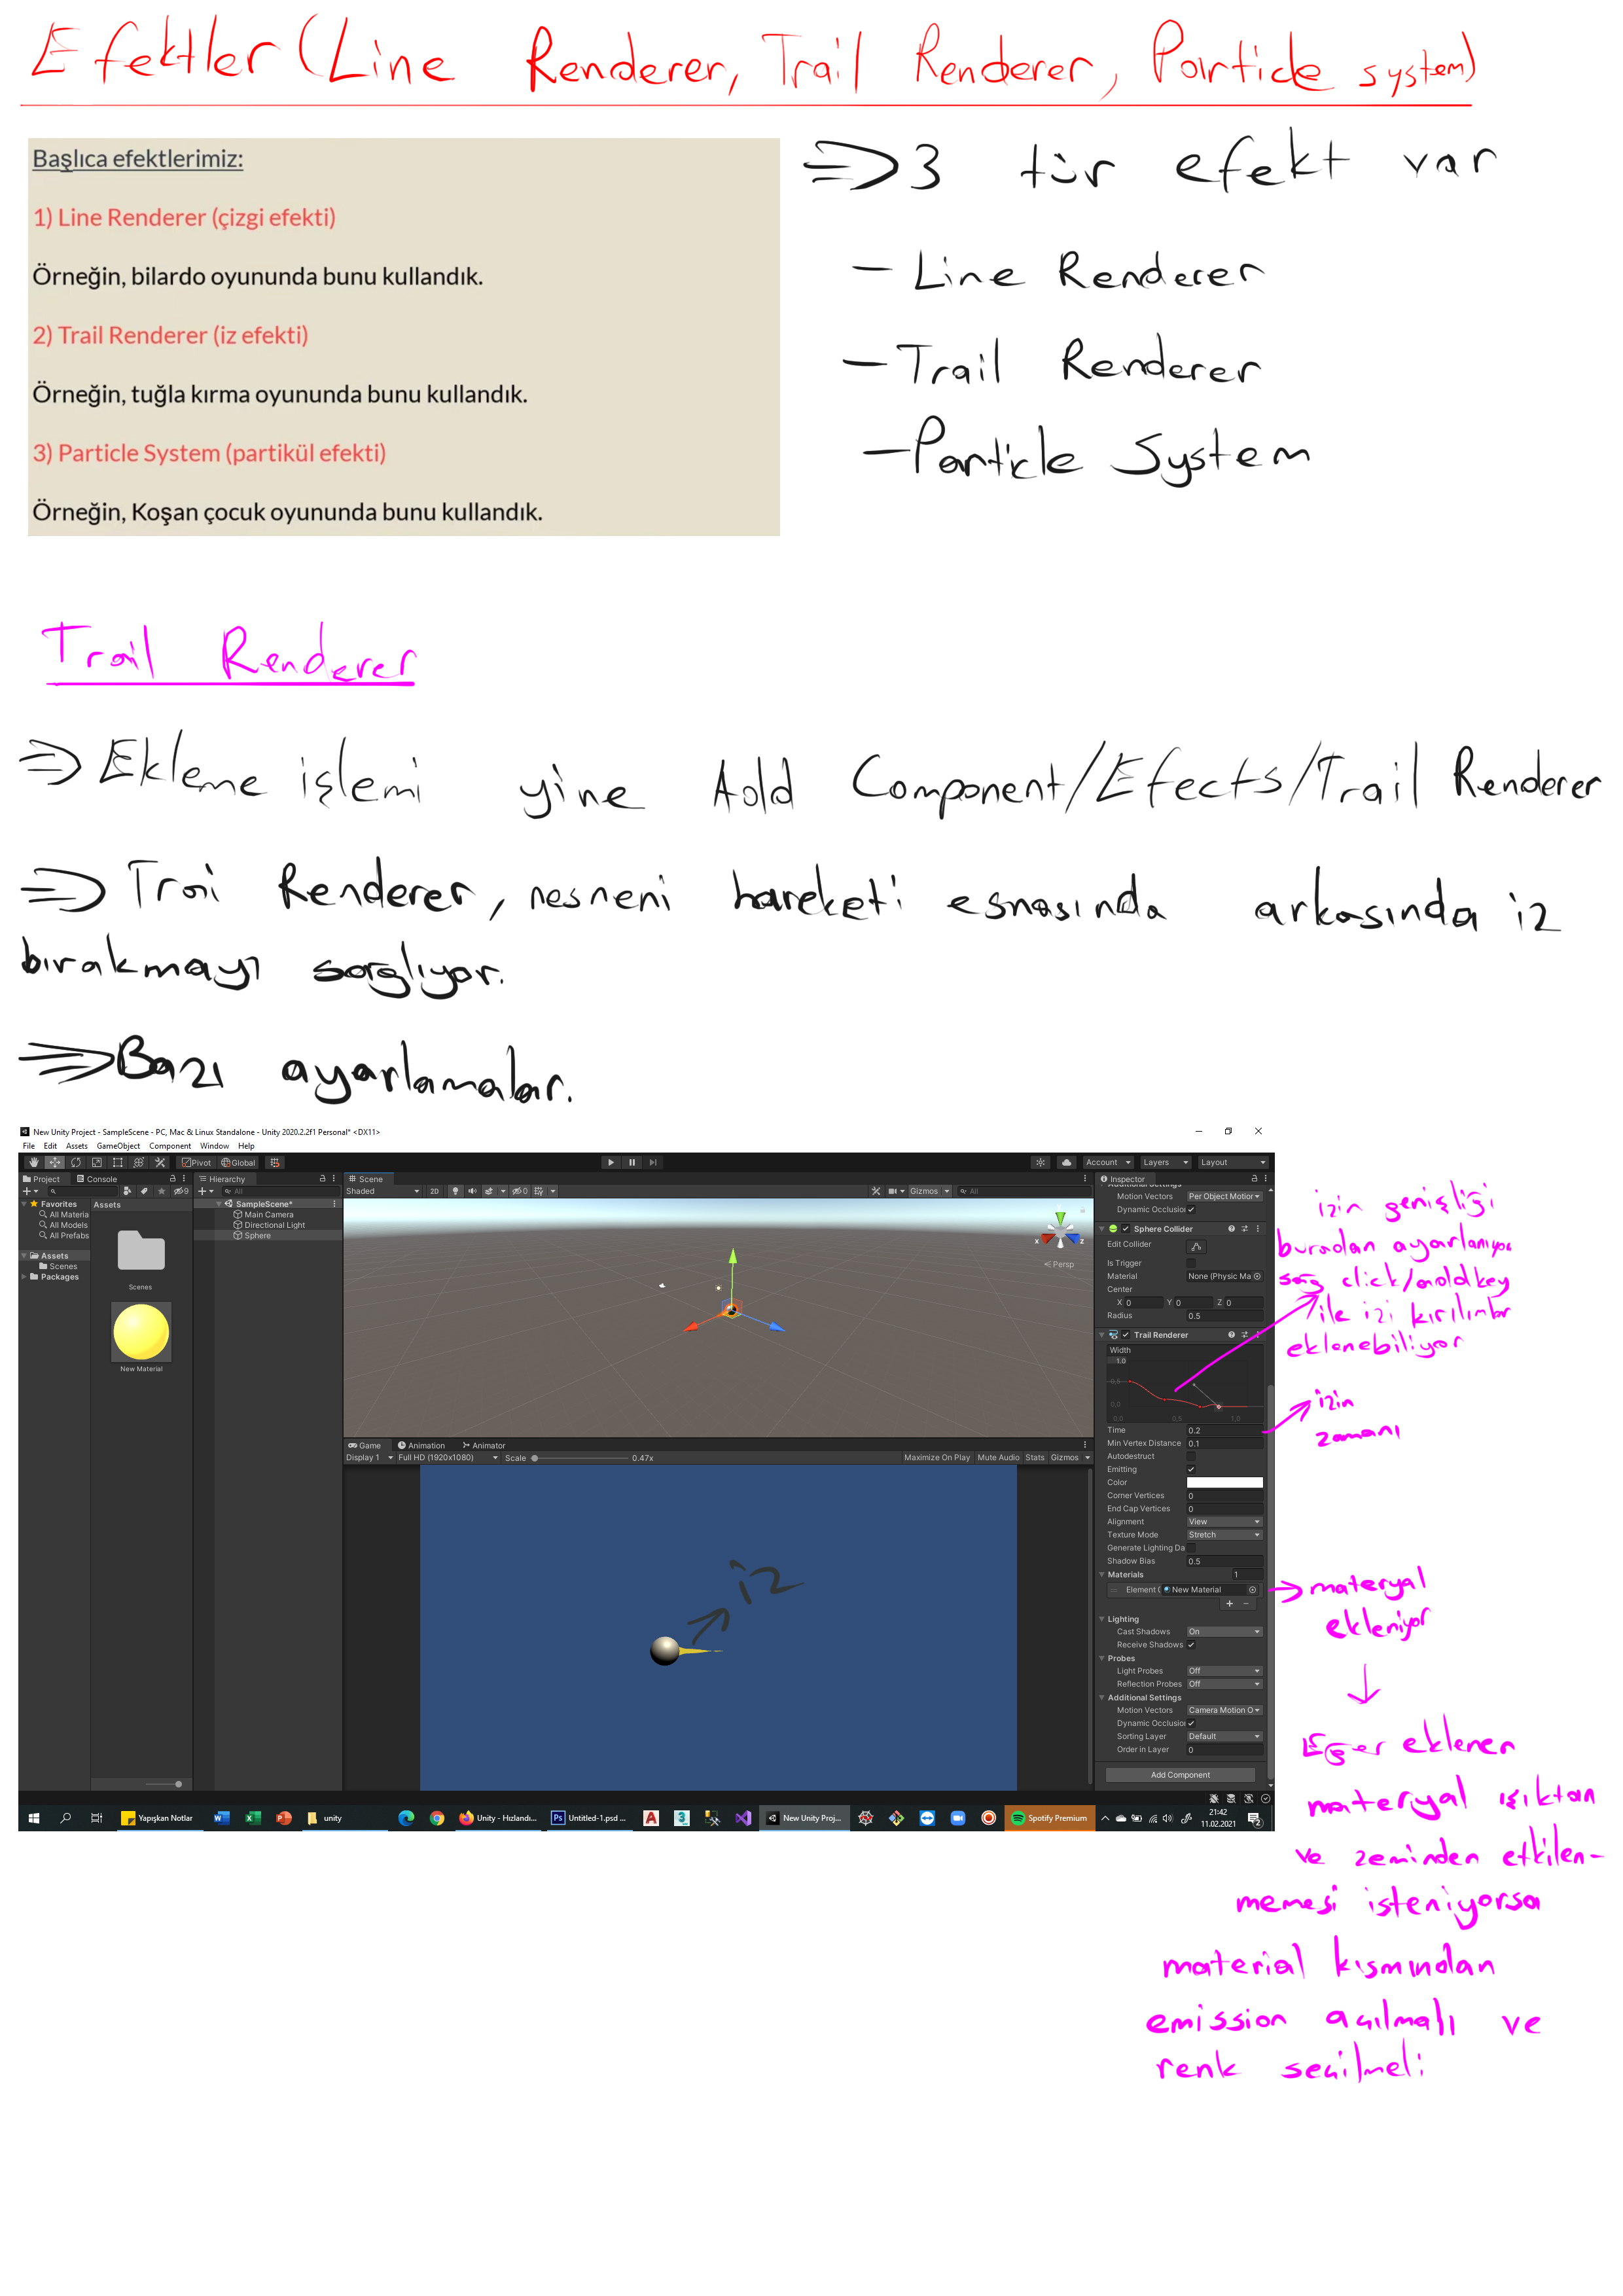 Efektler (Line Renderer, Trail Renderer, Particle system)
Başlıca efektlerimiz:
1) Line Renderer (çizgi efekti)
Örneğin, bilardo oyununda bunu kullandık.
2) Trail Renderer (iz efekti)
Örneğin, tuğla kırma oyununda bunu kullandık.
3) Particle System (partikül efekti)
Örneğin, Koşan çocuk oyununda bunu kullandık.
⇒ 3 tür efekt var
- Line Renderer
- Trail Renderer
- Particle System
Trail Renderer
⇒ Ekleme işlemi yine Add Component/Efects/Trail Renderer
⇒ Trai Renderer, nesneni hareketi esnasında arkasında iz
bırakmayı sağlıyor.
⇒ Bazı ayarlamalar.
New Unity Project - SampleScene - PC, Mac & Linux Standalone - Unity 2020.2.2f1 Personal* <DX11>
File Edit Assets GameObject Component Window Help
Pivot Global
Account Layers Layout
Project Console
Favorites
All Materia
All Models
All Prefabs
Assets
Scenes
Packages
Assets
Scenes
New Material
Hierarchy
All
SampleScene*
Main Camera
Directional Light
Sphere
Scene
Shaded 2D 0 Gizmos All
x z
Persp
Game Animation Animator
Display 1 Full HD (1920x1080) Scale 0.47x Maximize On Play Mute Audio Stats Gizmos
iz
Inspector
Additional Settings
Motion Vectors Per Object Motior
Dynamic Occlusion
Sphere Collider
Edit Collider
Is Trigger
Material None (Physic Ma
Center
X 0 Y 0 Z 0
Radius 0.5
Trail Renderer
Width
1.0
0.5
0,0
0,0 0,5 1,0
Time 0.2
Min Vertex Distance 0.1
Autodestruct
Emitting
Color
Corner Vertices 0
End Cap Vertices 0
Alignment View
Texture Mode Stretch
Generate Lighting Da
Shadow Bias 0.5
Materials 1
Element 0 New Material
Lighting
Cast Shadows On
Receive Shadows
Probes
Light Probes Off
Reflection Probes Off
Additional Settings
Motion Vectors Camera Motion O
Dynamic Occlusion
Sorting Layer Default
Order in Layer 0
Add Component
izin genişliği
buradan ayarlanıyor
sağ click/add key
ile izi kırılımlar
eklenebiliyor
izin
zamanı
materyal
ekleniyor
Eğer eklenen
materyal ışıktan
ve zeminden etkilen-
memesi isteniyorsa
material kısmından
emission açılmalı ve
renk seçilmeli
Yapışkan Notlar unity Unity - Hızlandı... Untitled-1.psd ... New Unity Proj... Spotify Premium 21:42
11.02.2021
2